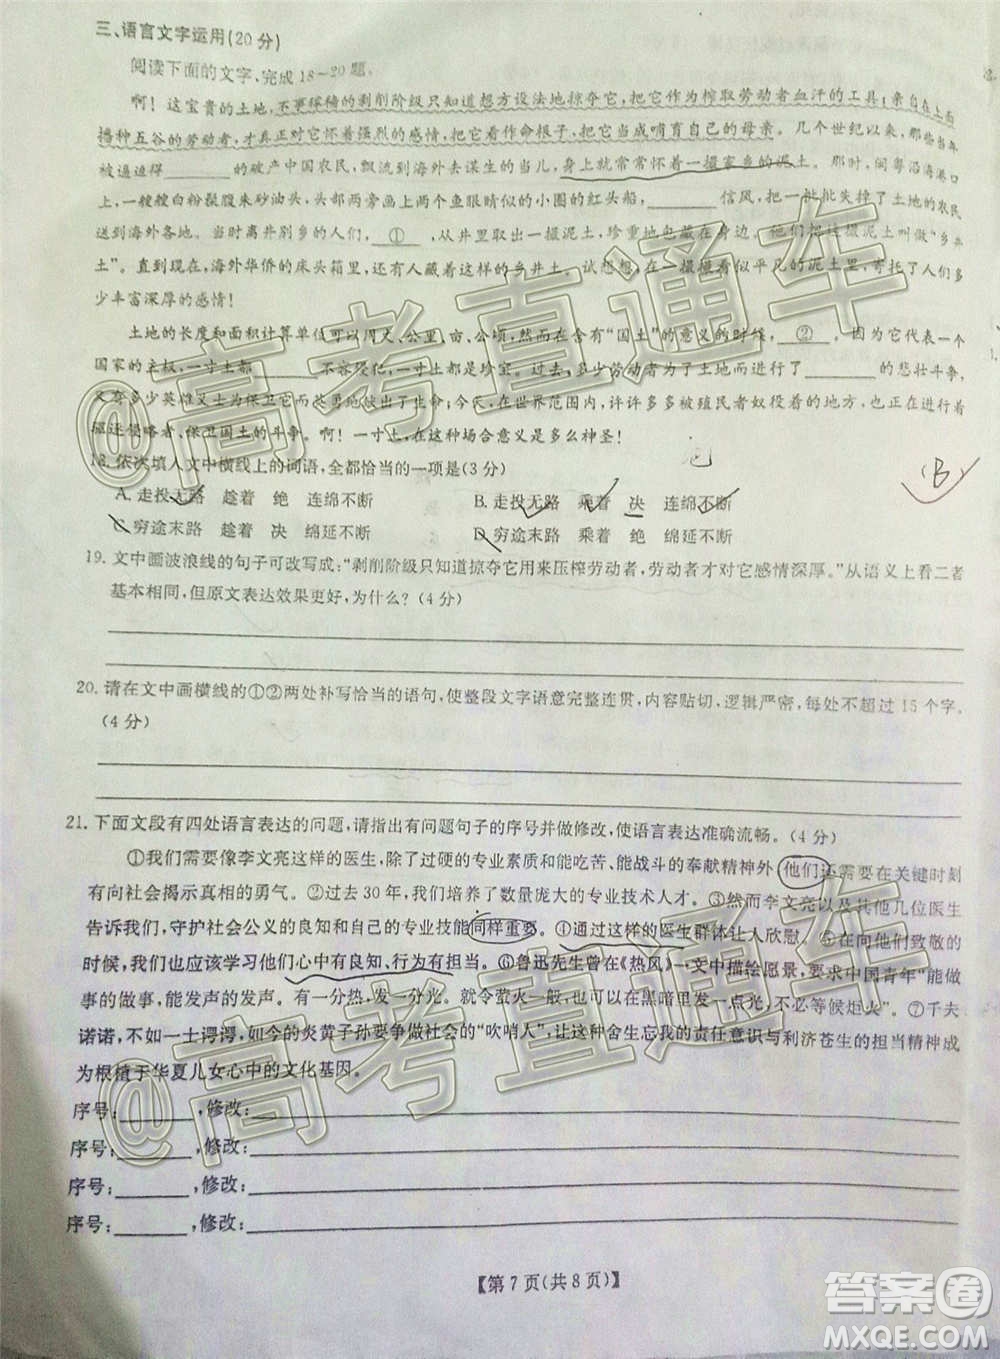 三、语言文字运用(20分)
阅读下面的文字,完成18~20题。
啊！这宝贵的土地,不事稼穑的剥削阶级只知道想方设法地掠夺它,把它作为榨取劳动者血汗的工具;亲自在上面
播种五谷的劳动者,才真正对它怀着强烈的感情,把它看作命根子,把它当成哺育自己的母亲。几个世纪以来,那些当年
被逼迫得______的破产中国农民,飘流到海外去谋生的当儿,身上就常常怀着一撮家乡的泥土。那时,闽粤沿海港口
上,一艘艘白粉髹腹朱砂油头,头部两旁画上两个鱼眼睛似的小圈的红头船,______信风,把一批批失掉了土地的农民
送到海外各地。当时离乡别井的人们,①,从井里取出一撮泥土,珍重地包藏在身边。他们把这撮泥土叫做“乡井
土”。直到现在,海外华侨的床头箱里,还有人藏着这样的乡井土。试想想,在一撮撮看似平凡的泥土里,寄托了人们多
少丰富深厚的感情！
土地的长度和面积计算单位可以用丈、公里、亩、公顷等等,但在含有“国土”的意义的时候,②。因为它代表一个
国家的主权,一寸土都______不容侵犯,一寸土都是珍宝。过去,多少劳动者为了土地而展开了______的悲壮斗争,
又有多少英雄义士为保卫它英勇地献出了生命;今天,在世界范围内,许许多多被殖民者奴役着的地方,也掀起了
驱逐侵略者、保卫国土的斗争。啊！一寸土,在这种场合意义是多么神圣！
18.依次填入文中横线上的词语,全都恰当的一项是(3分)
A.走投无路 趁着 绝 连绵不断 B.走投无路 乘着 决 绵延不断
C.穷途末路 趁着 决 绵延不断 D.穷途末路 乘着 绝 连绵不断
19.文中画波浪线的句子可改写成:“剥削阶级只知道掠夺它用来压榨劳动者,劳动者才对它感情深厚。”从语义上看二者
基本相同,但原文表达效果更好,为什么？(4分)
20.请在文中画横线的①②两处补写恰当的语句,使整段文字语意完整连贯,内容贴切,逻辑严密,每处不超过15个字。
(4分)
21.下面文段有四处语言表达的问题,请指出有问题句子的序号并做修改,使语言表达准确流畅。(4分)
①我们需要像李文亮这样的医生,除了过硬的专业素质和能吃苦、能战斗的奉献精神外,他们还需要在关键时刻
有向社会揭示真相的勇气。②过去30年,我们培养了数量庞大的专业技术人才。③然而李文亮以及其他几位医生
告诉我们,守护社会公义的良知和自己的专业技能同样重要。④通过这样的医生群体让人欣慰。⑤在我们致敬的
时候,我们也应该学习他们心中有良知、行为有担当。⑥鲁迅先生曾在《热风》一文中描绘愿景,要求中国青年“能做
事的做事,能发声的发声。有一分热,发一分光。就令萤火一般,也可以在黑暗里发一点光,不必等候炬火”。⑦千夫
诺诺,不如一士谔谔,如今的炎黄子孙要争做社会的“吹哨人”,让这种舍生忘我的责任意识与利济苍生的担当精神成
为根植于华夏儿女心中的文化基因。
序号:______,修改:
序号:______,修改:
序号:______,修改:
序号:______,修改:
【第7页(共8页)】
它
B
@高考直通车
@高考直通车
答案圈
MXQE.COM